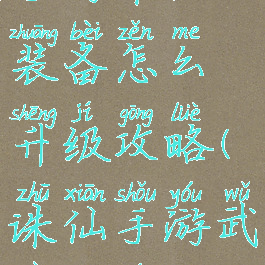 zhuāng bèi zěn me
装备怎么
shēng jí gōng lüè
升级攻略(
zhū xiān shǒu yóu wǔ
诛仙手游武